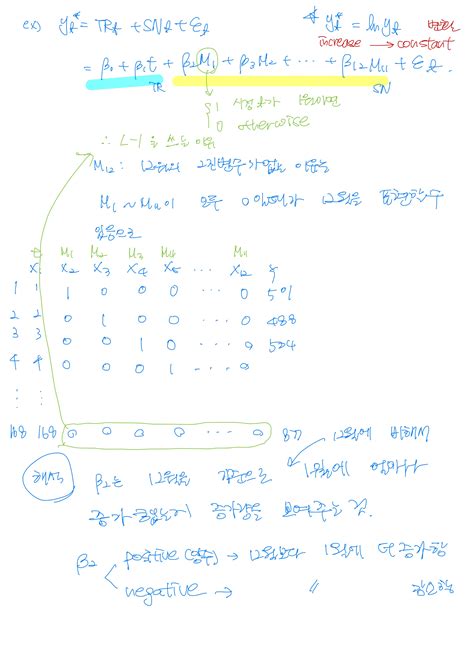 ex) y_t* = TR_t + SN_t + ε_t      * y_t* = ln y_t 변환
increase → constant
= β₀ + β₁t + β₂M₁ + β₃M₂ + ⋯ + β₁₂M₁₁ + ε_t
TR SN
1 시점 t가 1월이면
0 otherwise
∴ L-1을 쓰는 이유
M₁₂ : 12월의 가변수가 없는 이유는
M₁ ~ M₁₁이 모두 0일때가 12월을 표현할수
있음으로
t M₁ M₂ M₃ M₄ M₁₁
X₁ X₂ X₃ X₄ X₅ ⋯ X₁₂ y
1 1 1 0 0 0 ⋯ 0 501
2 2 0 1 0 0 ⋯ 0 488
3 3 0 0 1 0 ⋯ 0 504
4 4 0 0 0 1 ⋯ 0
⋮ ⋮
168 168 0 0 0 0 ⋯ 0 877 12월에 비해서
해석 β₂는 12월을 기준으로 1월에 얼마나
증가했는지 증가량을 보여주는 값.
β₂ positive (양수) → 12월보다 1월에 더 증가함
negative → 〃 감소함